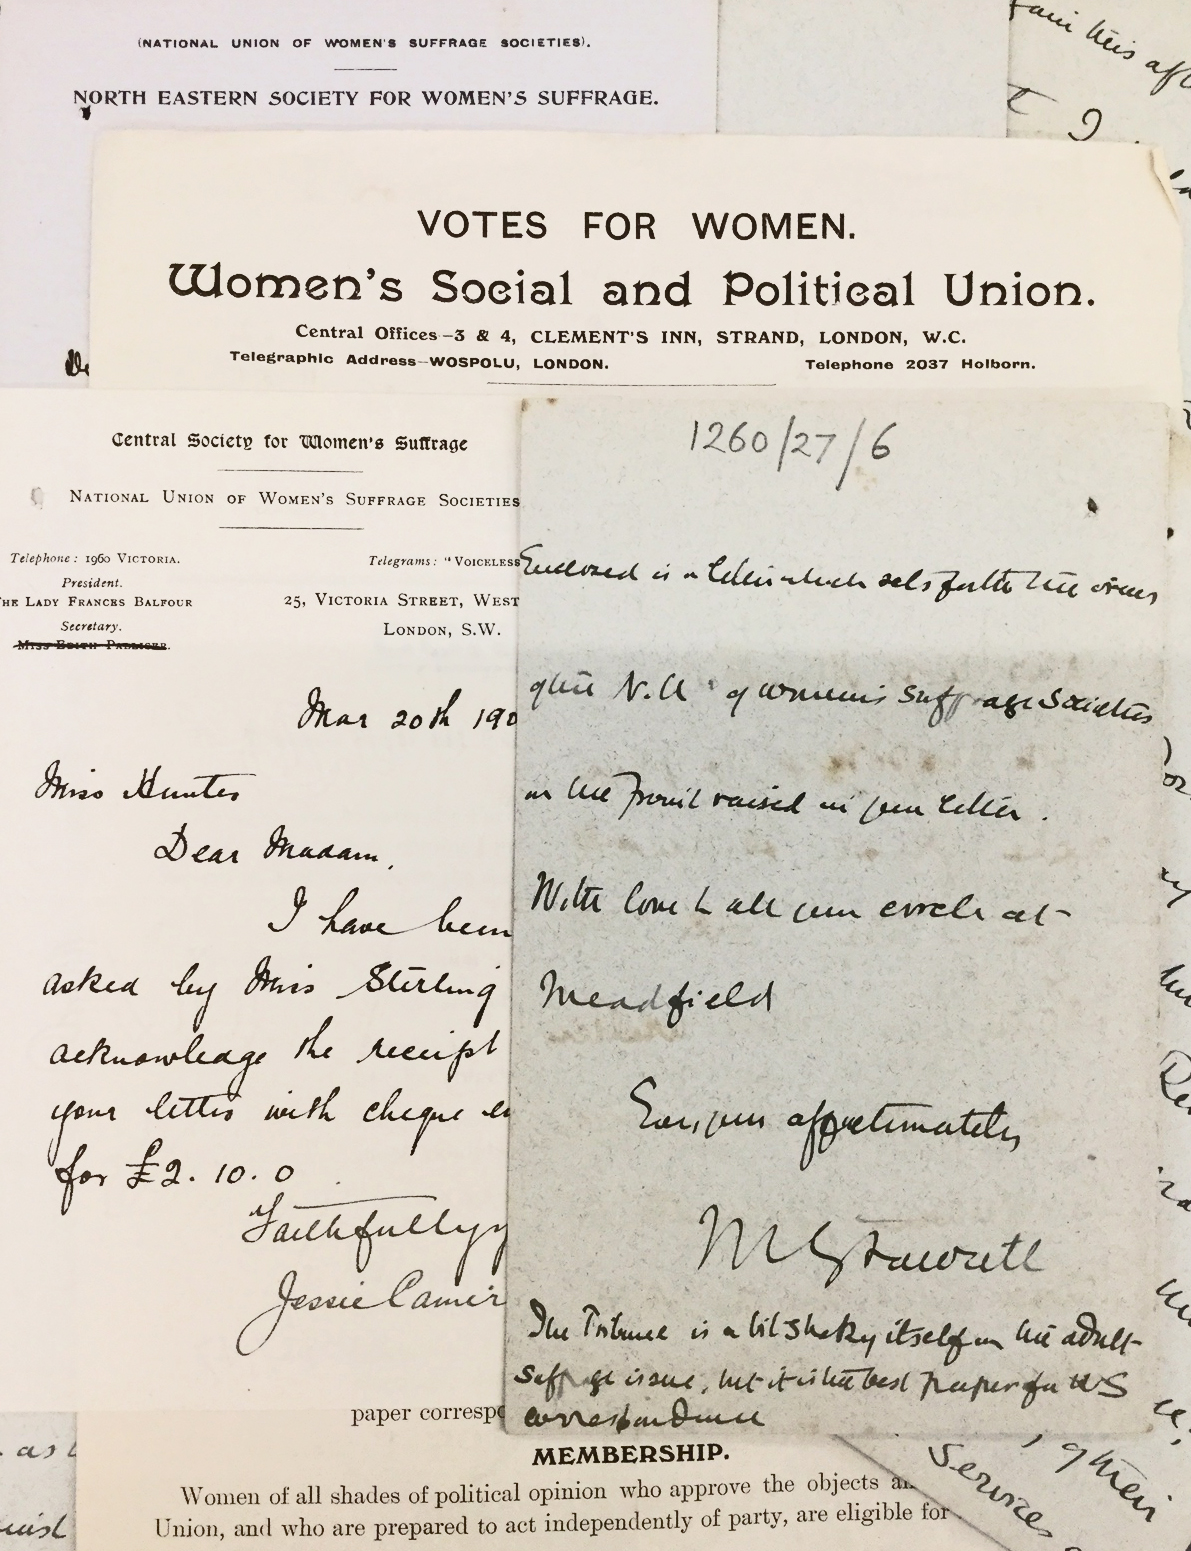 (NATIONAL UNION OF WOMEN'S SUFFRAGE SOCIETIES).
NORTH EASTERN SOCIETY FOR WOMEN'S SUFFRAGE.
VOTES FOR WOMEN.
Women's Social and Political Union.
Central Offices-3 & 4, CLEMENT'S INN, STRAND, LONDON, W.C.
Telegraphic Address-WOSPOLU, LONDON.
Telephone 2037 Holborn.
Central Society for Women's Suffrage
NATIONAL UNION OF WOMEN'S SUFFRAGE SOCIETIES
Telephone: 1960 VICTORIA.
Telegrams: "VOICELESS
President.
HE LADY FRANCES BALFOUR
25, VICTORIA STREET, WEST
Secretary.
LONDON, S.W.
MISS EDITH PALLISER.
Mar 20th 190
Miss Hunter
Dear Madam,
I have been
asked by Miss Sterling
acknowledge the receipt
your letter with cheque en
for £2.10.0
Faithfully y
Jessie Camer
1260/27/6
Enclosed is a letter which sets forth the views
of the N.U. of Women's Suffrage Societies
on the point raised in your letter.
With love to all your circle at
Meadfield
Ever your affectionately
M G Fawcett
The Tribune is a bit shaky itself on the adult
suffrage issue, but it is the best paper for WS
correspondence
paper correspo
MEMBERSHIP.
Women of all shades of political opinion who approve the objects an
Union, and who are prepared to act independently of party, are eligible for
this
I
of their
services